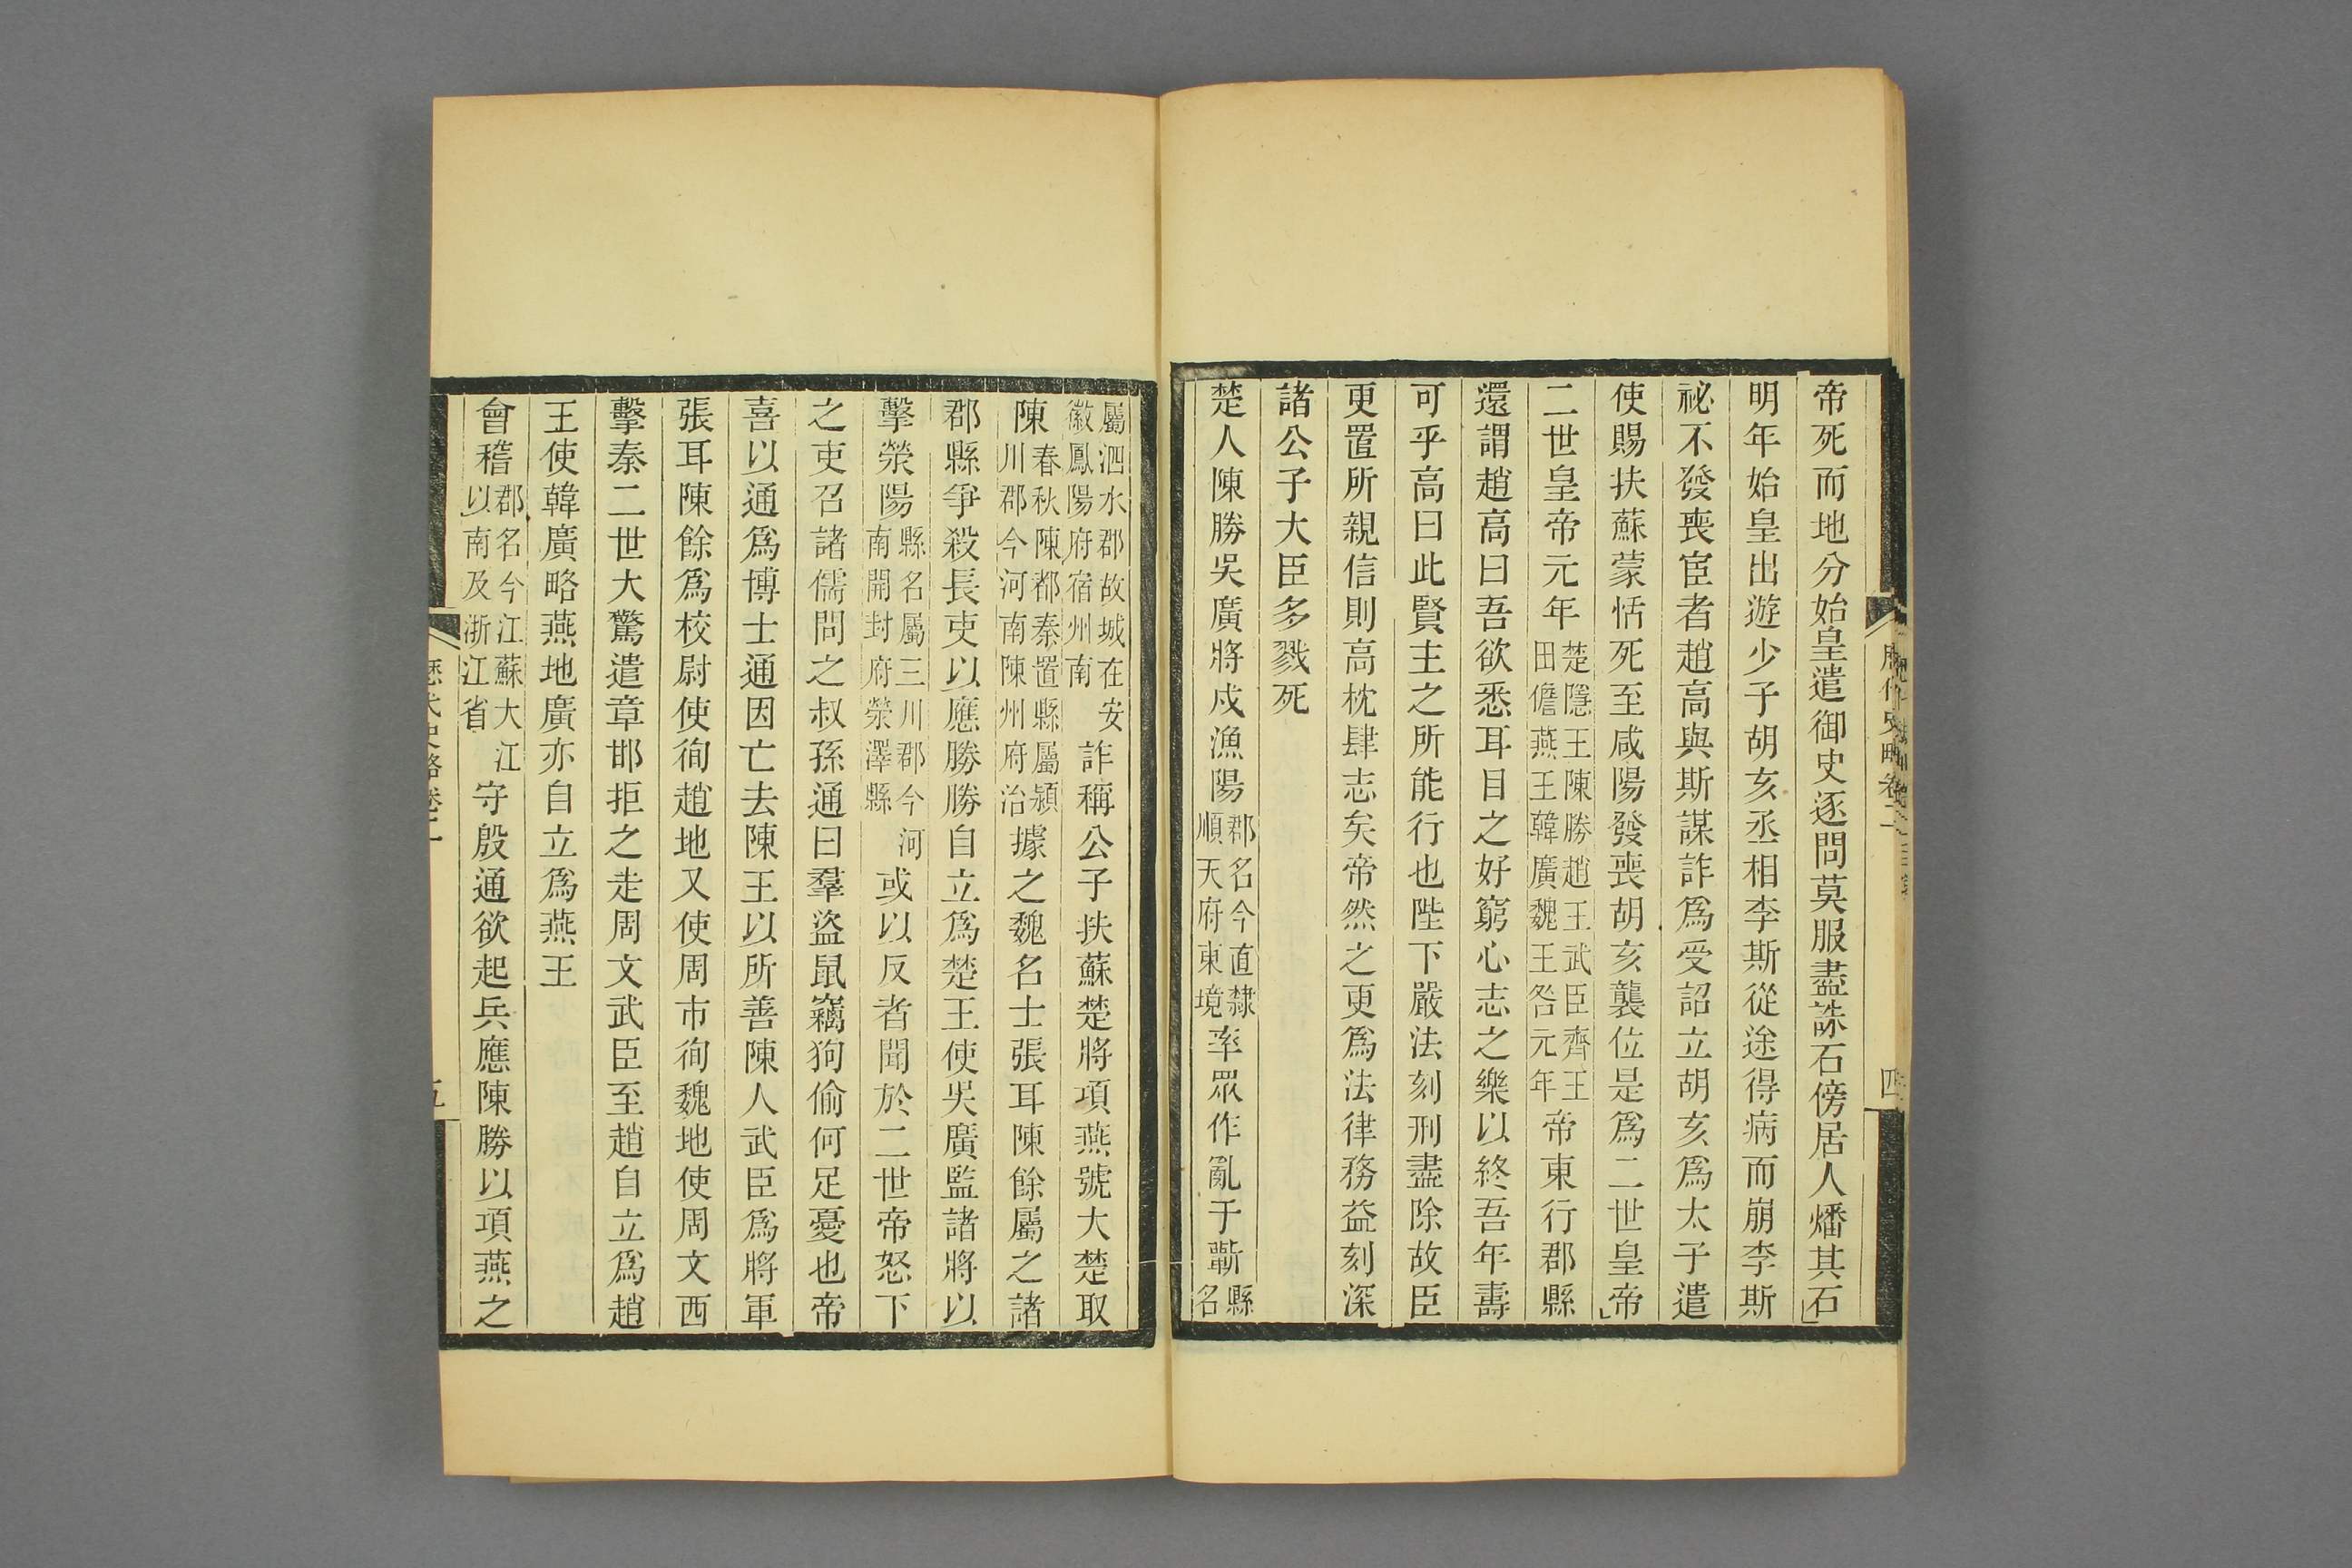 帝死而地分始皇遣御史逐問莫服盡誅石傍居人燔其石
明年始皇出遊少子胡亥丞相李斯從途得病而崩李斯
祕不發喪宦者趙高與斯謀詐爲受詔立胡亥爲太子遣
使賜扶蘇蒙恬死至咸陽發喪胡亥襲位是爲二世皇帝
二世皇帝元年楚隱王陳勝趙王武臣齊王田儋燕王韓廣魏王咎元年帝東行郡縣
還謂趙高曰吾欲悉耳目之好窮心志之樂以終吾年壽
可乎高曰此賢主之所能行也陛下嚴法刻刑盡除故臣
更置所親信則高枕肆志矣帝然之更爲法律務益刻深
諸公子大臣多戮死
楚人陳勝吳廣將戍漁陽郡名今直隸順天府東境率眾作亂于蘄縣名
屬泗水郡故城在安徽鳳陽府宿州南詐稱公子扶蘇楚將項燕號大楚取
陳春秋陳都秦置縣屬潁川郡今河南陳州府治據之魏名士張耳陳餘屬之諸
郡縣爭殺長吏以應勝勝自立爲楚王使吳廣監諸將以
擊滎陽縣名屬三川郡今河南開封府滎澤縣或以反者聞於二世帝怒下
之吏召諸儒問之叔孫通曰羣盜鼠竊狗偷何足憂也帝
喜以通爲博士通因亡去陳王以所善陳人武臣爲將軍
張耳陳餘爲校尉使徇趙地又使周市徇魏地使周文西
擊秦二世大驚遣章邯拒之走周文武臣至趙自立爲趙
王使韓廣略燕地廣亦自立爲燕王
會稽郡名今江蘇大江以南及浙江省守殷通欲起兵應陳勝以項燕之